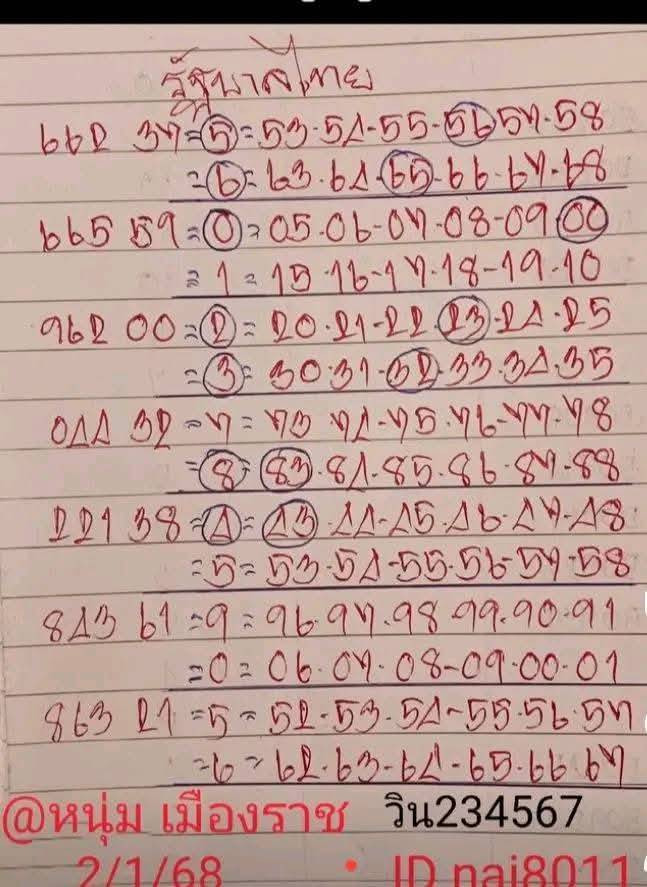 รัฐบาลไทย
662 37=5=53.54-55-56 57.58
=6=63.64.65.66.67.68
665 59=0=05.06-07-08-09.00
=1=15.16-17.18-19.10
962 00=2=20.21-22.23-24.25
=3=30.31.32.33.34.35
044 32=7=73 74-75.76-77.78
=8=83.84.85.86.87.88
221 38=4=43.44-45.46-47-48
=5=53.54-55.56-57-58
843 61=9=96.97.98-99.90.91
=0=06.07.08-09.00.01
863 21=5=52-53.54-55.56.57
=6=62.63-64-65.66.67
@หนุ่ม เมืองราช วิน234567
2/1/68 • ID nai8011